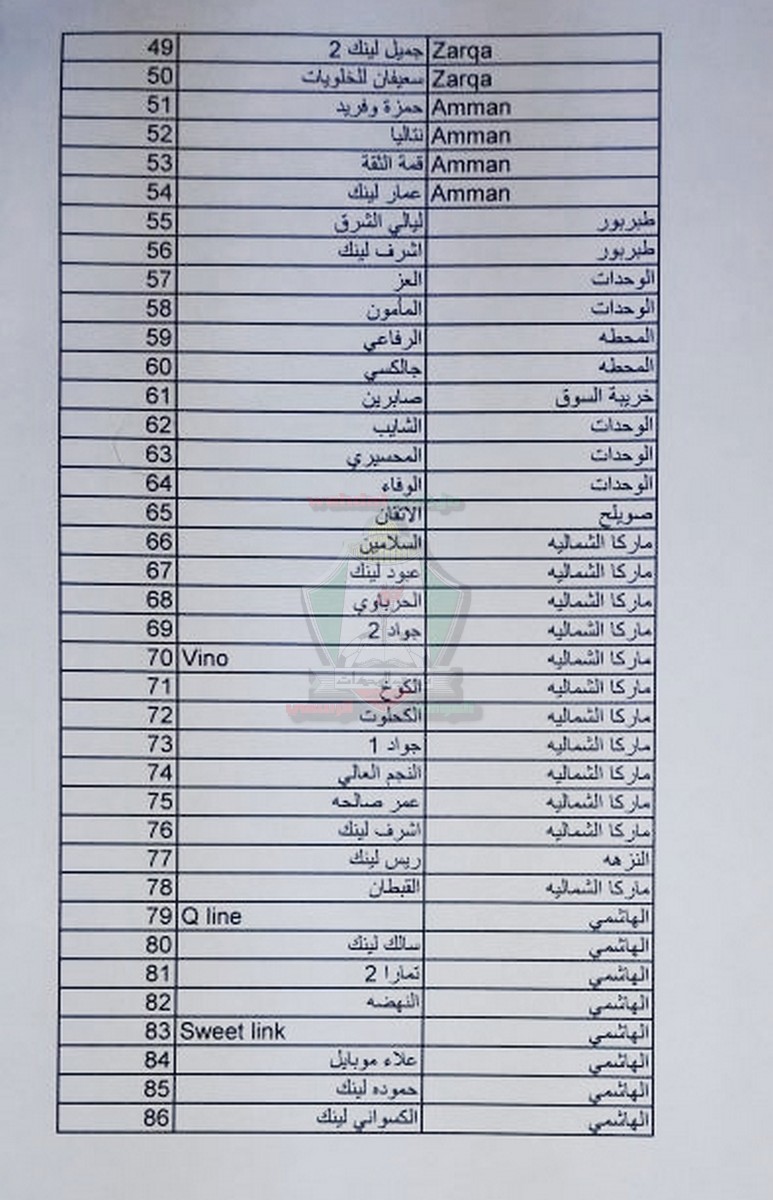 49 جميل لينك 2 Zarqa
50 سعيفان للخلويات Zarqa
51 حمزة وفريد Amman
52 نتاليا Amman
53 قمة الثقة Amman
54 عمار لينك Amman
55 ليالي الشرق طبربور
56 اشرف لينك طبربور
57 العز الوحدات
58 المأمون الوحدات
59 الرفاعي المحطه
60 جالكسي المحطه
61 صابرين خريبة السوق
62 الشايب الوحدات
63 المحسيري الوحدات
64 الوفاء الوحدات
65 الاتقان صويلح
66 السلامين ماركا الشماليه
67 عبود لينك ماركا الشماليه
68 الحرباوي ماركا الشماليه
69 جواد 2 ماركا الشماليه
70 Vino ماركا الشماليه
71 الكوخ ماركا الشماليه
72 الكحلوت ماركا الشماليه
73 جواد 1 ماركا الشماليه
74 النجم العالي ماركا الشماليه
75 عمر صالحه ماركا الشماليه
76 اشرف لينك ماركا الشماليه
77 ريس لينك النزهه
78 القبطان ماركا الشماليه
79 Q line الهاشمي
80 سالك لينك الهاشمي
81 تمارا 2 الهاشمي
82 النهضه الهاشمي
83 Sweet link الهاشمي
84 علاء موبايل الهاشمي
85 حموده لينك الهاشمي
86 الكسواني لينك الهاشمي